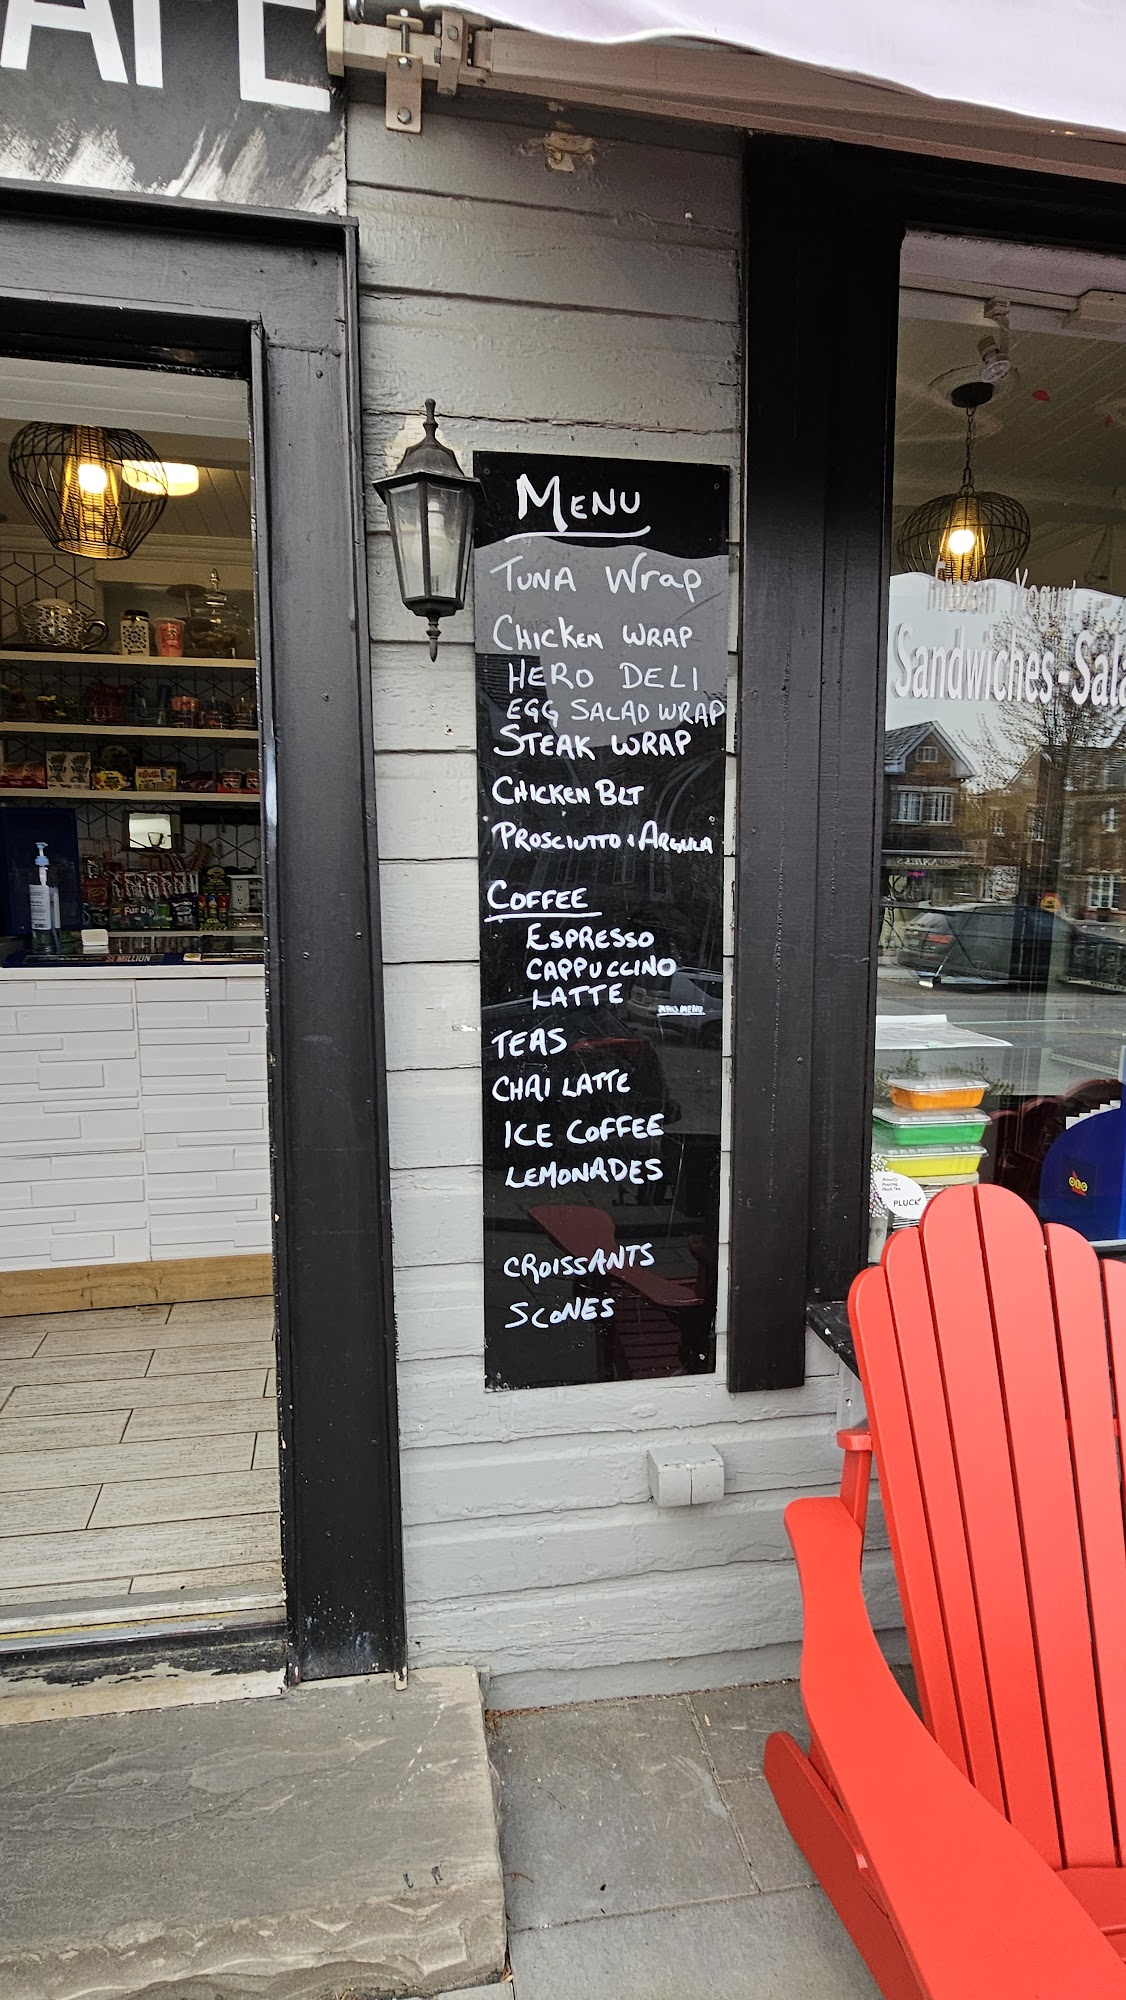 AFE
MENU
TUNA Wrap
CHICKEN WRAP
HERO DELI
EGG SALAD WRAP
STEAK WRAP
CHICKEN BLT
PROSCIUTTO & ARGULA
COFFEE
ESPRESSO
CAPPUCCINO
LATTE
TEAS
CHAI LATTE
ICE COFFEE
LEMONADES
CROISSANTS
SCONES
Frozen Yogurt -
Sandwiches - Sala
Fun Dip
MILLION
PLUCK
OLG